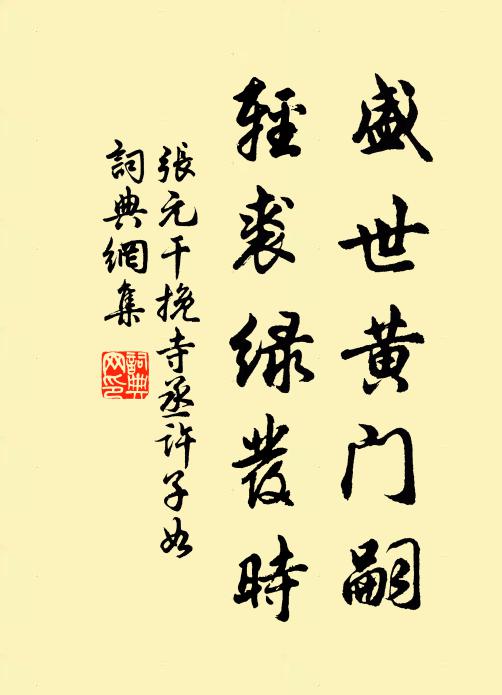 盛世黄门嗣
轻裘绿发時
張元干挽寺丞許子如
詞典網集
詞典网印